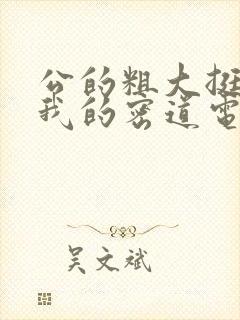 公的粗大挺
我的密道电
吴文斌